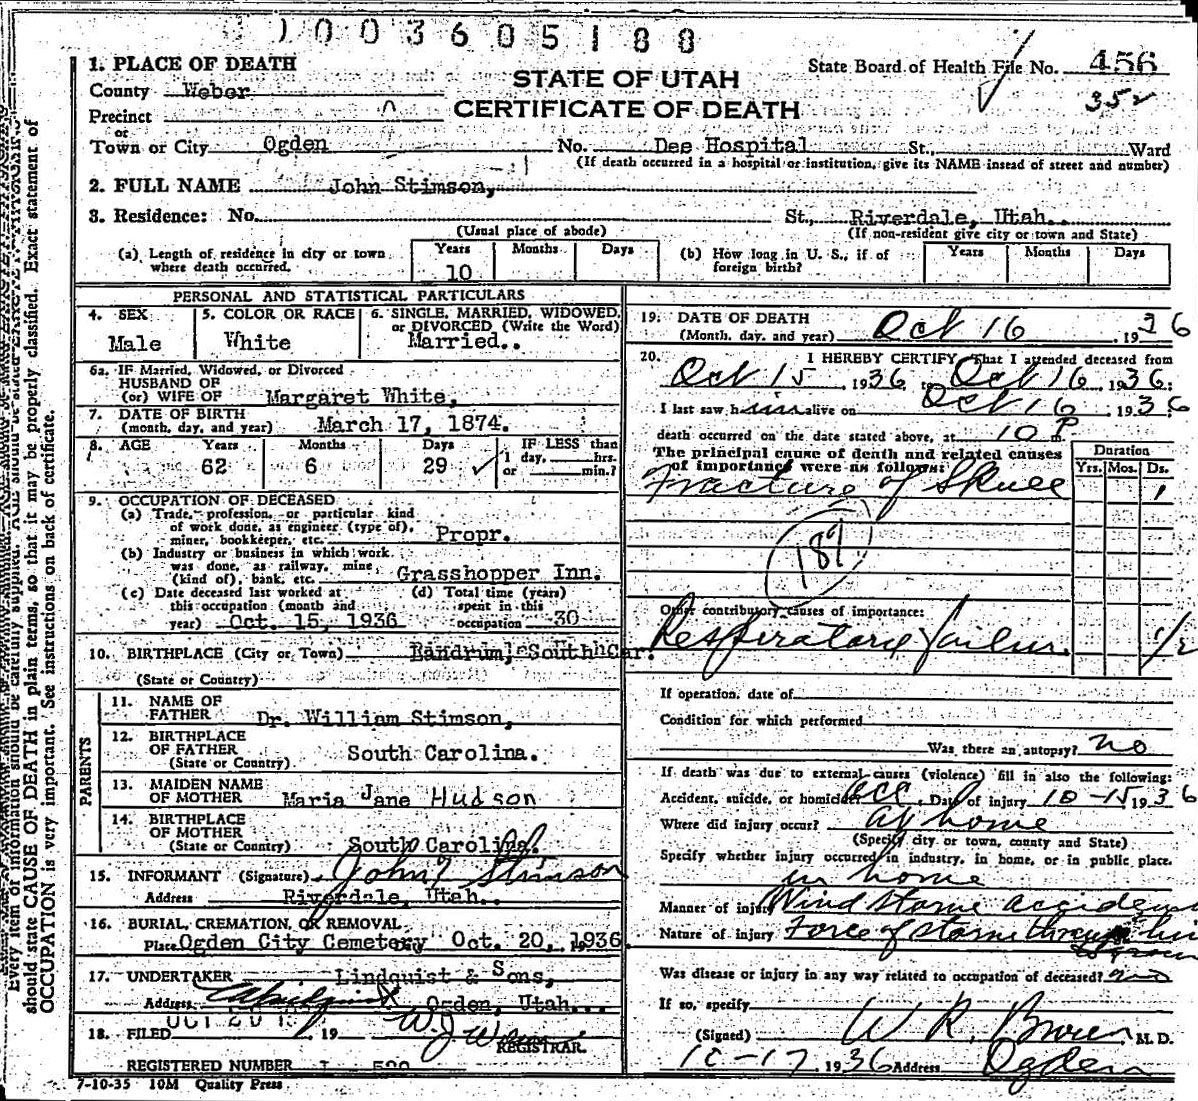 1003605188
State Board of Health File No. 456
352
STATE OF UTAH
CERTIFICATE OF DEATH
1. PLACE OF DEATH
County Weber
Precinct
or
Town or City Ogden No. Dee Hospital St., Ward
(If death occurred in a hospital or institution, give its NAME insead of street and number)
2. FULL NAME John Stimson,
3. Residence: No. St., Riverdale, Utah.
(Usual place of abode) (If non-resident give city or town and State)
(a) Length of residence in city or town where death occurred. Years 10 Months Days
(b) How long in U. S., if of foreign birth? Years Months Days
PERSONAL AND STATISTICAL PARTICULARS
4. SEX Male
5. COLOR OR RACE White
6. SINGLE, MARRIED, WIDOWED, or DIVORCED (Write the Word) Married..
6a. IF Married, Widowed, or Divorced
HUSBAND OF
(or) WIFE OF Margaret White,
7. DATE OF BIRTH
(month, day, and year) March 17, 1874.
8. AGE Years 62 Months 6 Days 29 IF LESS than 1 day, hrs. or min.?
9. OCCUPATION OF DECEASED
(a) Trade, profession, or particular kind
of work done, as engineer (type of),
miner, bookkeeper, etc. Propr.
(b) Industry or business in which work
was done, as railway, mine
(kind of), bank, etc. Grasshopper Inn.
(c) Date deceased last worked at this occupation (month and year) Oct. 15, 1936
(d) Total time (years) spent in this occupation 30
10. BIRTHPLACE (City or Town) South Car.
(State or Country)
PARENTS
11. NAME OF FATHER Dr. William Stimson,
12. BIRTHPLACE OF FATHER
(State or Country) South Carolina.
13. MAIDEN NAME OF MOTHER Maria Jane Hudson
14. BIRTHPLACE OF MOTHER
(State or Country) South Carolina.
15. INFORMANT (Signature) John Stimson
Address Riverdale, Utah..
16. BURIAL, CREMATION, OR REMOVAL
Place Ogden City Cemetery Oct. 20, 1936.
17. UNDERTAKER Lindquist & Sons,
Address Ogden, Utah...
18. FILED OCT 20 19
REGISTRAR.
REGISTERED NUMBER
7-10-35 10M Quality Press
19. DATE OF DEATH
(Month, day, and year) Oct 16 1936
20. I HEREBY CERTIFY, That I attended deceased from
Oct 15, 1936 to Oct 16 1936.
I last saw him alive on Oct 16, 1936
death occurred on the date stated above, at 10 P m.
The principal cause of death and related causes
of importance were as follows:
Duration
Yrs. Mos. Ds.
Fracture of Skull 1
Other contributory causes of importance:
Respiratory failure. 1/2
If operation, date of
Condition for which performed
Was there an autopsy? no
If death was due to external causes (violence) fill in also the following:
Accident, suicide, or homicide? acc. Date of injury 10-15 1936
Where did injury occur? at home
(Specify city or town, county and State)
Specify whether injury occurred in industry, in home, or in public place.
in home
Manner of injury Wind storm accident
Nature of injury Force of storm
Was disease or injury in any way related to occupation of deceased? no
If so, specify
(Signed) W R. M. D.
10-17, 1936 Address Ogden
Every item of information should be carefully supplied. AGE should be stated EXACTLY.
should state CAUSE OF DEATH in plain terms, so that it may be properly classified. Exact statement of
OCCUPATION is very important. See instructions on back of certificate.